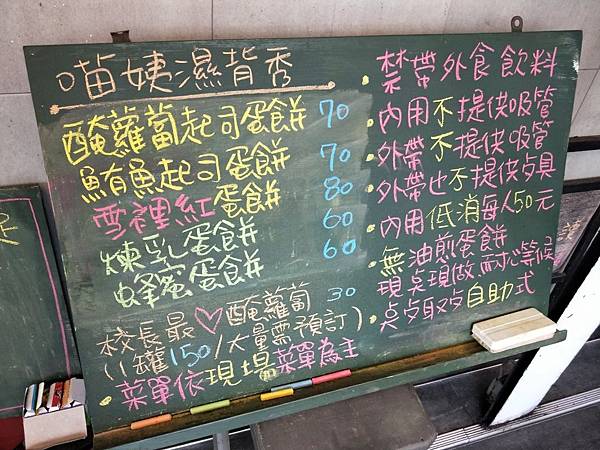 喵姨濕背秀
醃蘿蔔起司蛋餅 70
鮪魚起司蛋餅 70
雪裡紅蛋餅 80
煉乳蛋餅 60
蜂蜜蛋餅 60
校長最♡醃蘿蔔 30
(1罐150/大量需預訂)
•菜單依現場菜單為主
禁帶外食飲料
•內用不提供吸管
•外帶不提供吸管
•外帶也不提供餐具
•內用低消每人50元
•無油煎蛋餅
現点現做耐心等候
•点餐取餐自助式